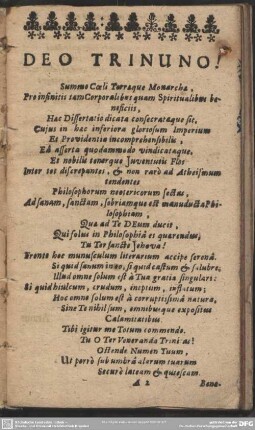 DEO TRINUNO!
Summo Cœli Terræque Monarchæ,
Pro infinitis tam Corporalibus quam Spiritualibus be-
neficiis,
Hæc Dissertatio dicata consecrataque sit,
Cujus in hæc inferiora gloriosum Imperium
Et Providentia incomprehensibilis,
Ed asserta quodammodo vindicataque,
Et nobilis tenerque Juventutis Flos
Inter tot discrepantes, & non rarò ad Atheismum
tendentes
Philosophorum neotericorum sectas,
Ad sanam, sanctam, sobriamque est manuducta Phi-
losophiam,
Quæ ad Te DEum ducit,
Qui solus in Philosophiâ es quærendus,
Tu Ter sancte Jehova!
Fronte hoc munusculum literarium accipe serenâ.
Si quid sanum inest, si quid castum & salubre,
Illud omne solum est à Tua gratia singulari:
Si quid hiulcum, crudum, ineptum, insicetum;
Hoc omne solum est à corruptissimâ naturâ,
Sine Te nihil sum, omnibusque expositus
Calamitatibus.
Tibi igitur me Totum commendo.
Tu O Ter Veneranda Trinitas!
Ostende Numen Tuum,
Ut porrò sub umbrâ alarum tuarum
Securè lateam & quiescam.
A 2 Bene-